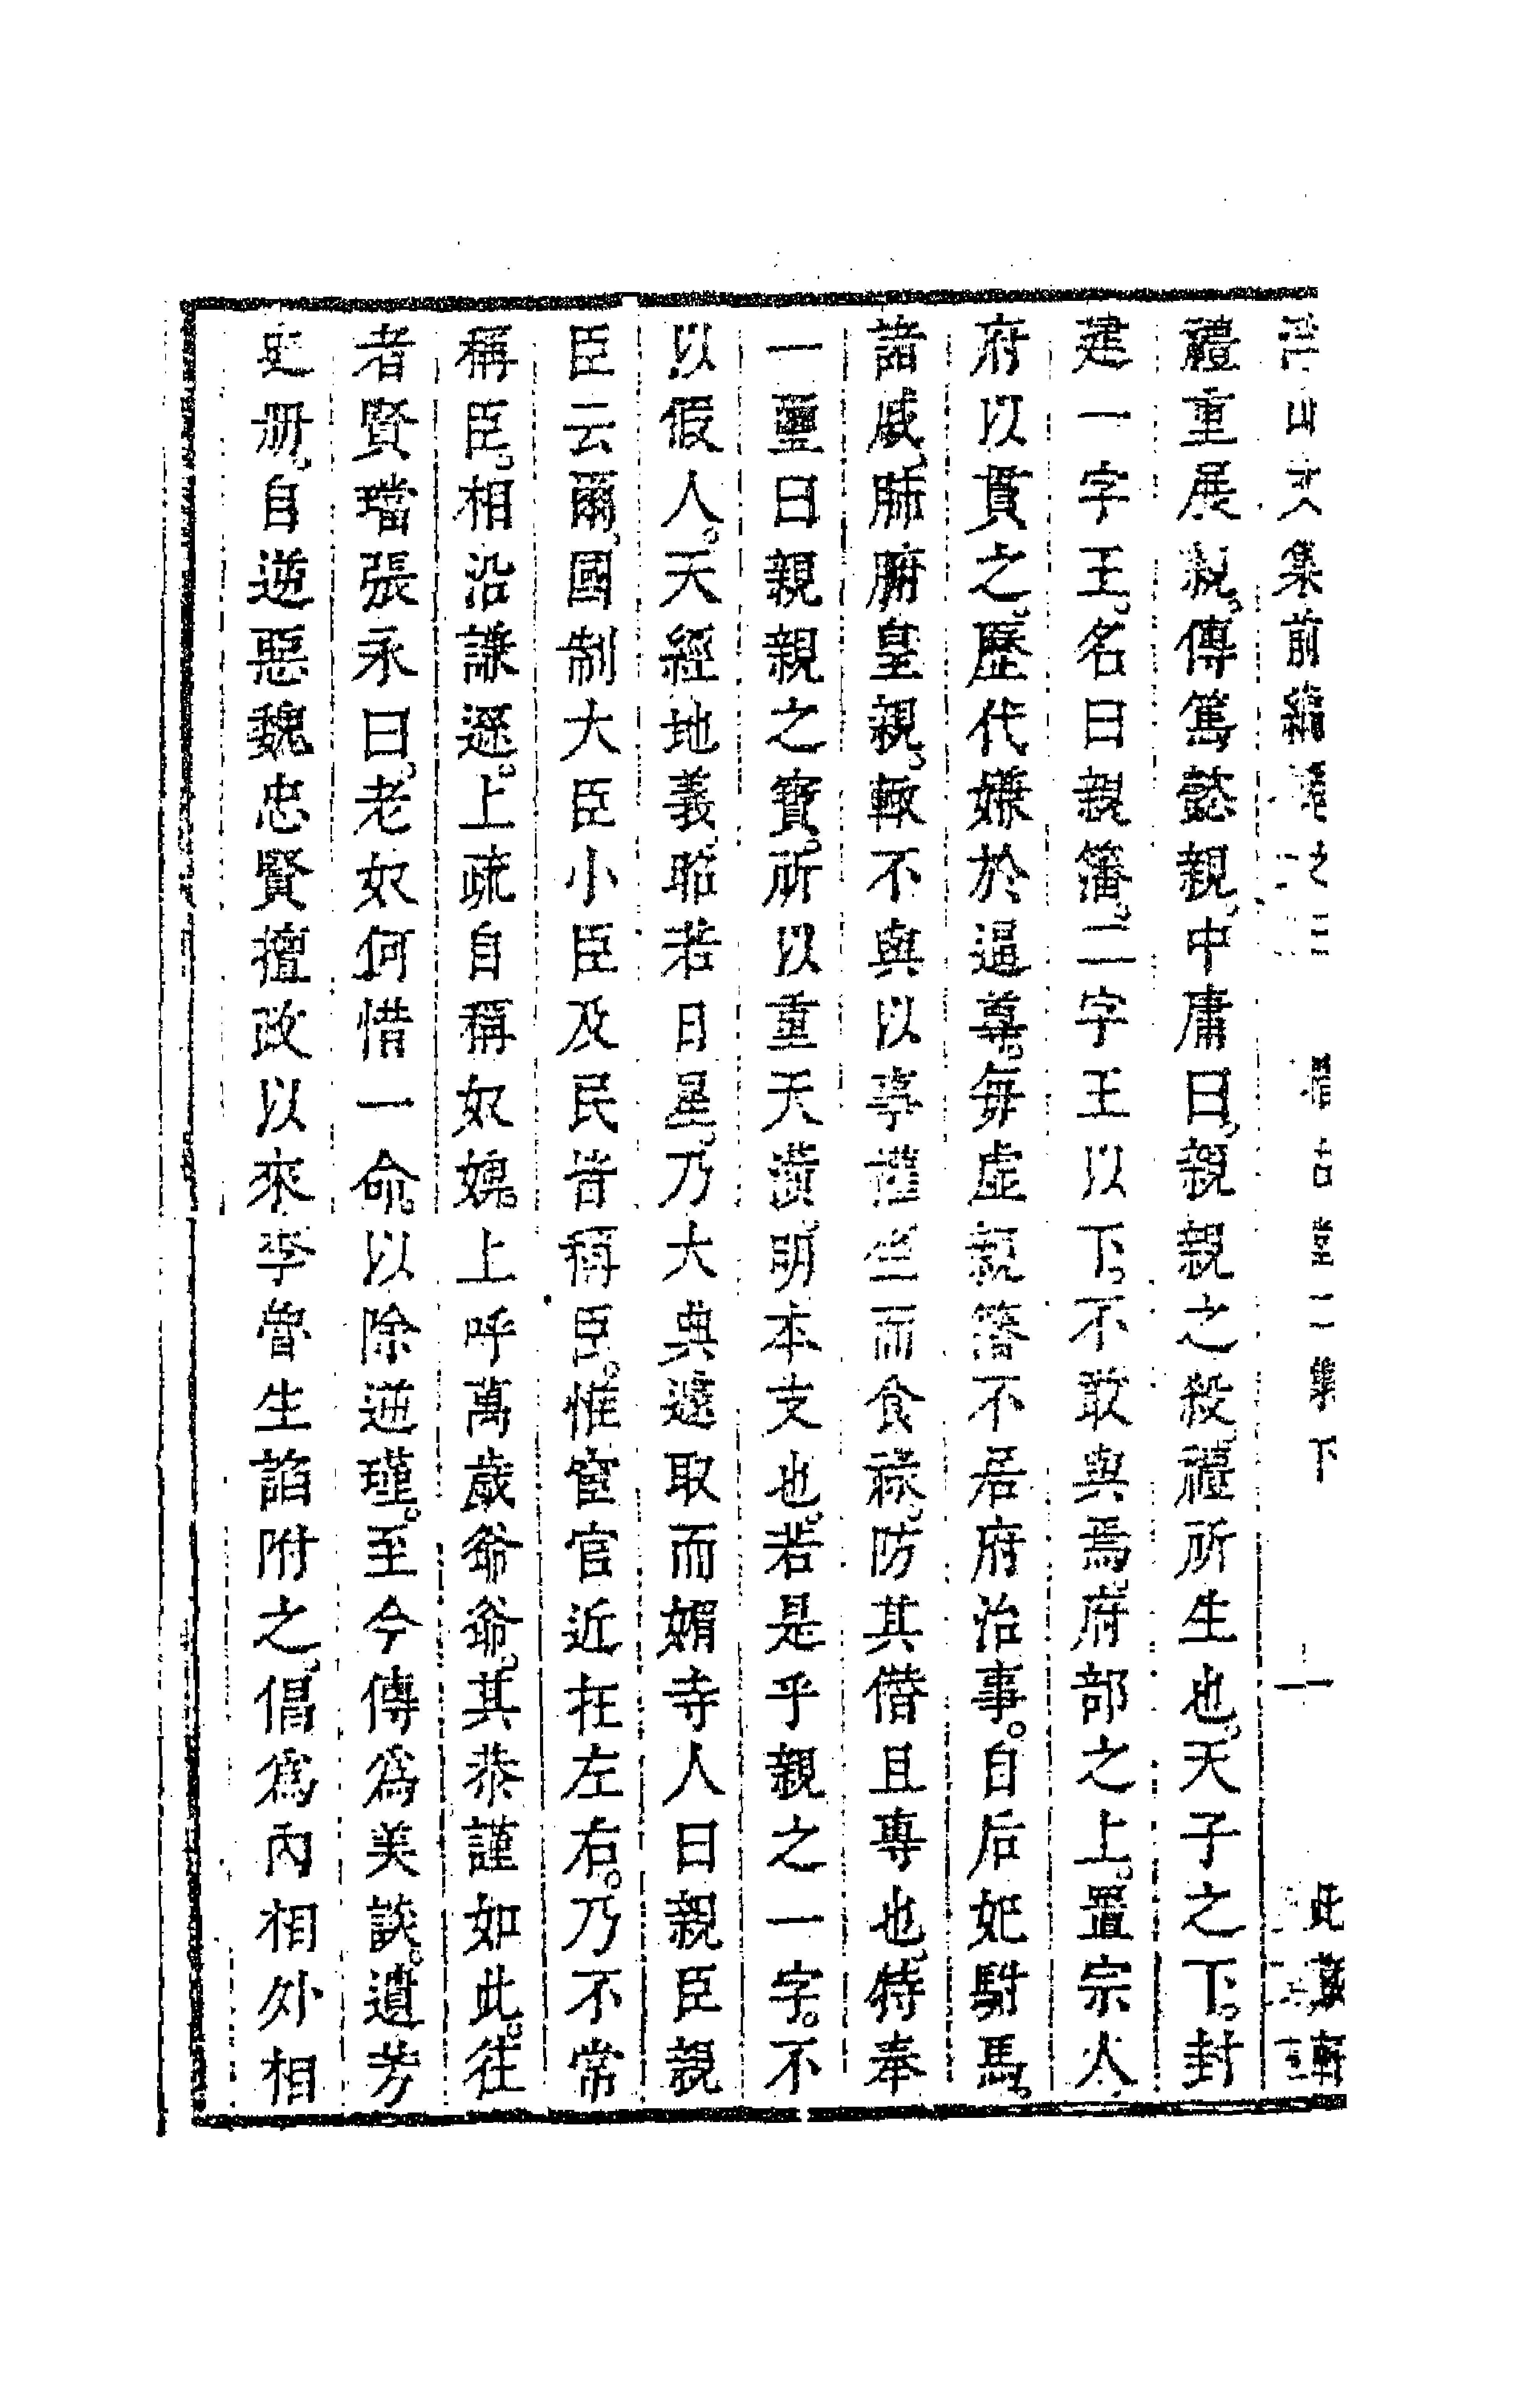 浮山文集前編卷之三 稽古堂二集下 十一 此藏軒
禮重展親傳篤懿親中庸曰親親之殺禮所生也天子之下封
建一字王名曰親籓二字王以下不敢與焉府部之上置宗人
府以貫之歷代嫌於逼尊毋虛親籓不居府治事自后妃駙馬
諸戚肺腑皇親輙不與以事謹坐而食祿防其僭且專也特奉
一璽曰親親之寶所以重天潢明本支也若是乎親之一字不
以假人天經地義昭若日星乃大典遽取而媚寺人曰親臣親
臣云爾國制大臣小臣及民皆稱臣惟宦官近在左右乃不常
稱臣相沿謙遜上疏自稱奴媿上呼萬歲爺爺其恭謹如此往
者賢璫張永曰老奴何惜一命以除逆瑾至今傳爲美談遺芳
史册自逆惡魏忠賢擅政以來李魯生諂附之倡爲內相外相